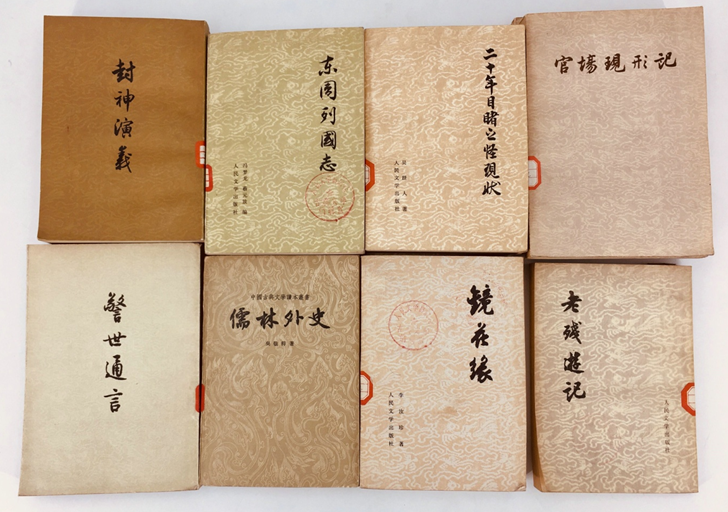 封神演義
东周列國志
冯梦龙 蔡元放 编
人民文学出版社
二十年目睹之怪現狀
吴趼人 著
人民文学出版社
官場現形記
警世通言
中國古典文學讀本叢書
儒林外史
吳敬梓著
镜花缘
李汝珍 著
人民文学出版社
老残遊記
人民文学出版社